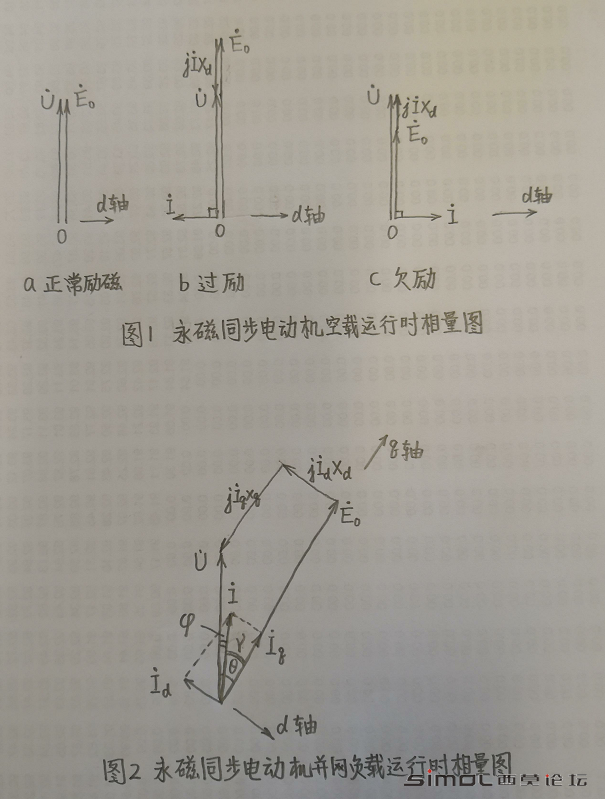 U̇ Ė₀ d轴 0
jİX_d Ė₀ U̇ İ 0 d轴
U̇ jİX_d Ė₀ 0 İ d轴
a 正常励磁 b 过励 c 欠励
图1 永磁同步电动机空载运行时相量图
q轴
jİ_dX_d
jİ_qX_q
Ė₀
U̇
İ
φ γ İ_q
θ
İ_d
d轴
图2 永磁同步电动机并网负载运行时相量图
simol西莫论坛